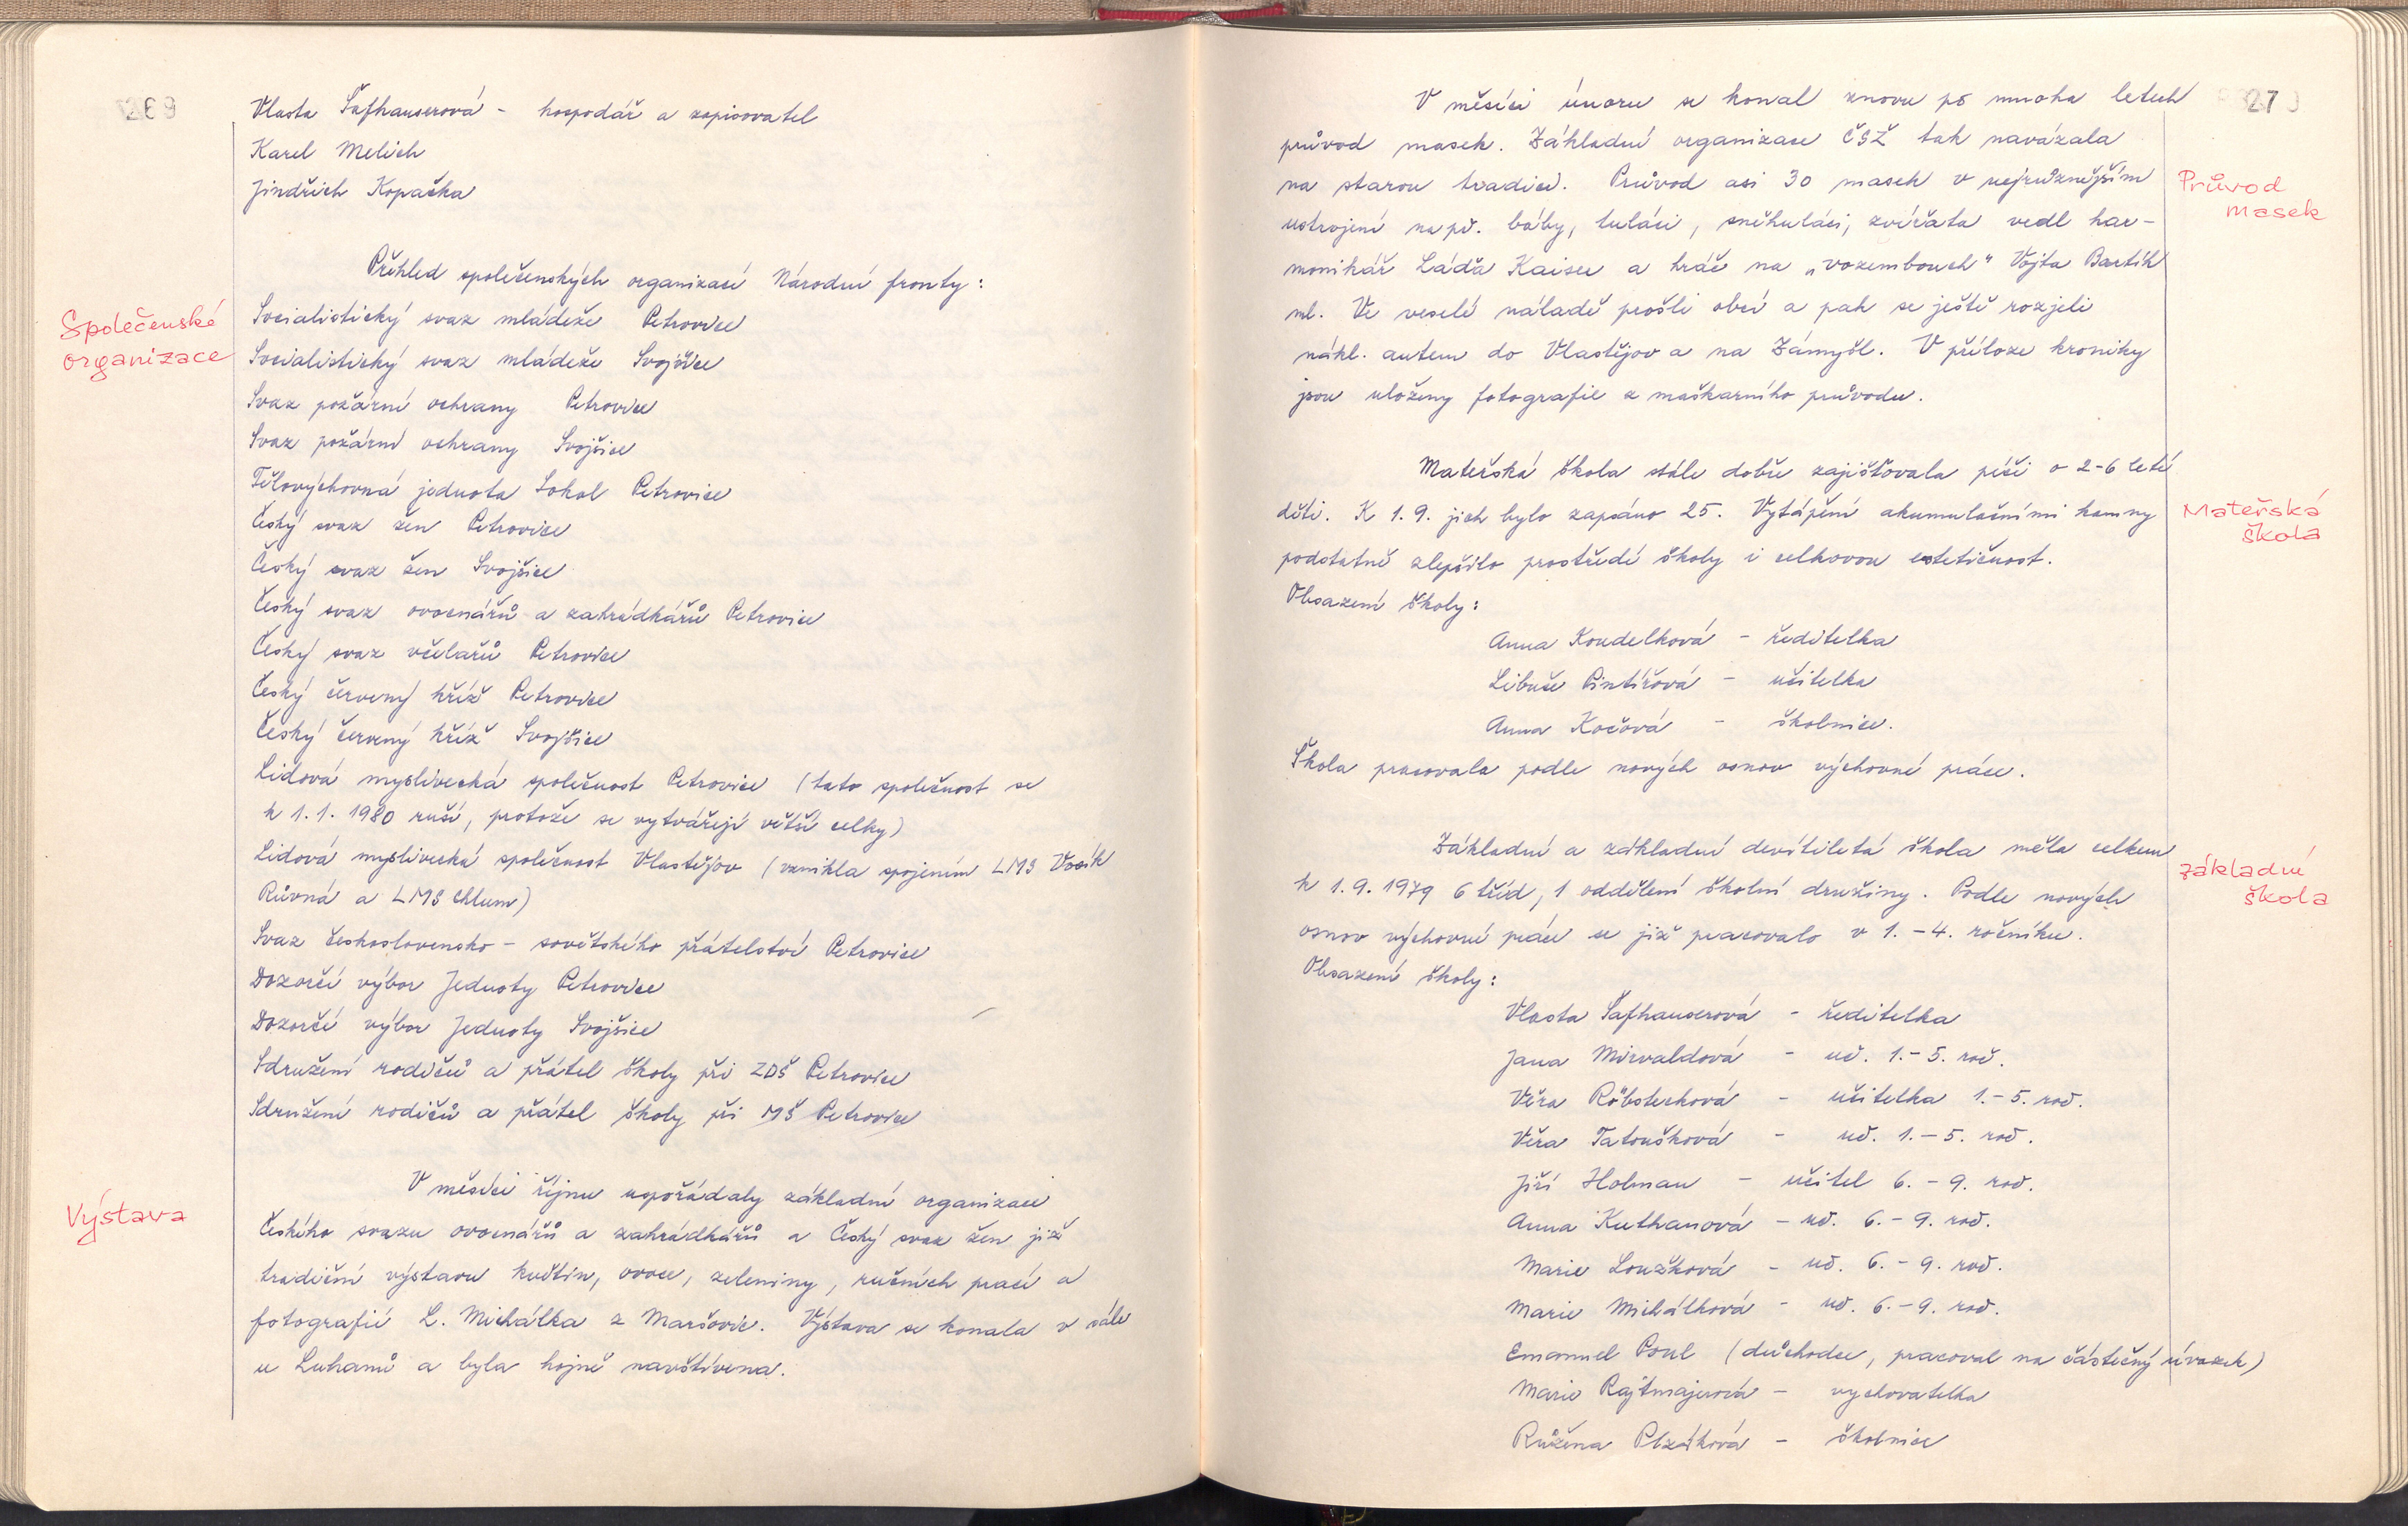 269
Vlasta Šafhauserová - hospodář a zapisovatel
Karel Melich
Jindřich Kopačka
Přehled společenských organizací Národní fronty:
Společenské
organizace
Socialistický svaz mládeže Petrovice
Socialistický svaz mládeže Svojšice
Svaz požární ochrany Petrovice
Svaz požární ochrany Svojšice
Tělovýchovná jednota Sokol Petrovice
Český svaz žen Petrovice
Český svaz žen Svojšice
Český svaz ovocnářů a zahrádkářů Petrovice
Český svaz včelařů Petrovice
Český červený kříž Petrovice
Český červený kříž Svojšice
Lidová myslivecká společnost Petrovice (tato společnost se
k 1.1. 1980 ruší, protože se vytvářejí větší celky)
Lidová myslivecká společnost Vlastějov (vznikla spojením LMS Vosík
Růvná a LMS Chlum)
Svaz československo - sovětského přátelství Petrovice
Dozorčí výbor Jednoty Petrovice
Dozorčí výbor Jednoty Svojšice
Sdružení rodičů a přátel školy při ZDŠ Petrovice
Sdružení rodičů a přátel školy při MŠ Petrovice
Výstava
V měsíci říjnu uspořádaly základní organizace
Českého svazu ovocnářů a zahrádkářů a Český svaz žen již
tradiční výstavu květin, ovoce, zeleniny, ručních prací a
fotografií L. Michálka z Maršovic. Výstava se konala v sále
u Luhanů a byla hojně navštívena.
270
V měsíci únoru se konal znovu po mnoha letech
průvod masek. Základní organizace ČSŽ tak navázala
na starou tradici. Průvod asi 30 masek v nejrůznějším
Průvod
masek
ustrojení např. báby, tuláci, sněhuláci, zvířata vedl har-
monikář Láďa Kaiser a hráč na „vozembouch" Vojta Bartík
ml. Ve veselé náladě prošli obcí a pak se ještě rozjeli
nákl. autem do Vlastějov a na Zámyšl. V příloze kroniky
jsou uloženy fotografie z maškarního průvodu.
Mateřská škola stále dobře zajišťovala péči o 2-6 leté
děti. K 1.9. jich bylo zapsáno 25. Vytápění akumulačními kamny
Mateřská
škola
podstatně zlepšilo prostředí školy i celkovou estetičnost.
Obsazení školy:
Anna Koudelková - ředitelka
Libuše Pintířová - učitelka
Anna Kočová - školnice.
Škola pracovala podle nových osnov výchovné práce.
Základní a základní devítiletá škola měla celkem
základní
škola
k 1.9.1979 6 tříd, 1 oddělení školní družiny. Podle nových
osnov výchovné práce se již pracovalo v 1.-4. ročníku.
Obsazení školy:
Vlasta Šafhauserová - ředitelka
Jana Mirvaldová - uč. 1.-5. roč.
Věra Röbsteková - učitelka 1.-5. roč.
Věra Tatoušková - uč. 1.-5. roč.
Jiří Holman - učitel 6.-9. roč.
Anna Kuthanová - uč. 6.-9. roč.
Marie Loužková - uč. 6.-9. roč.
Marie Michálková - uč. 6.-9. roč.
Emanuel Poul (důchodce, pracoval na částečný úvazek)
Marie Rajtmajerová - vychovatelka
Růžena Plzáková - školnice